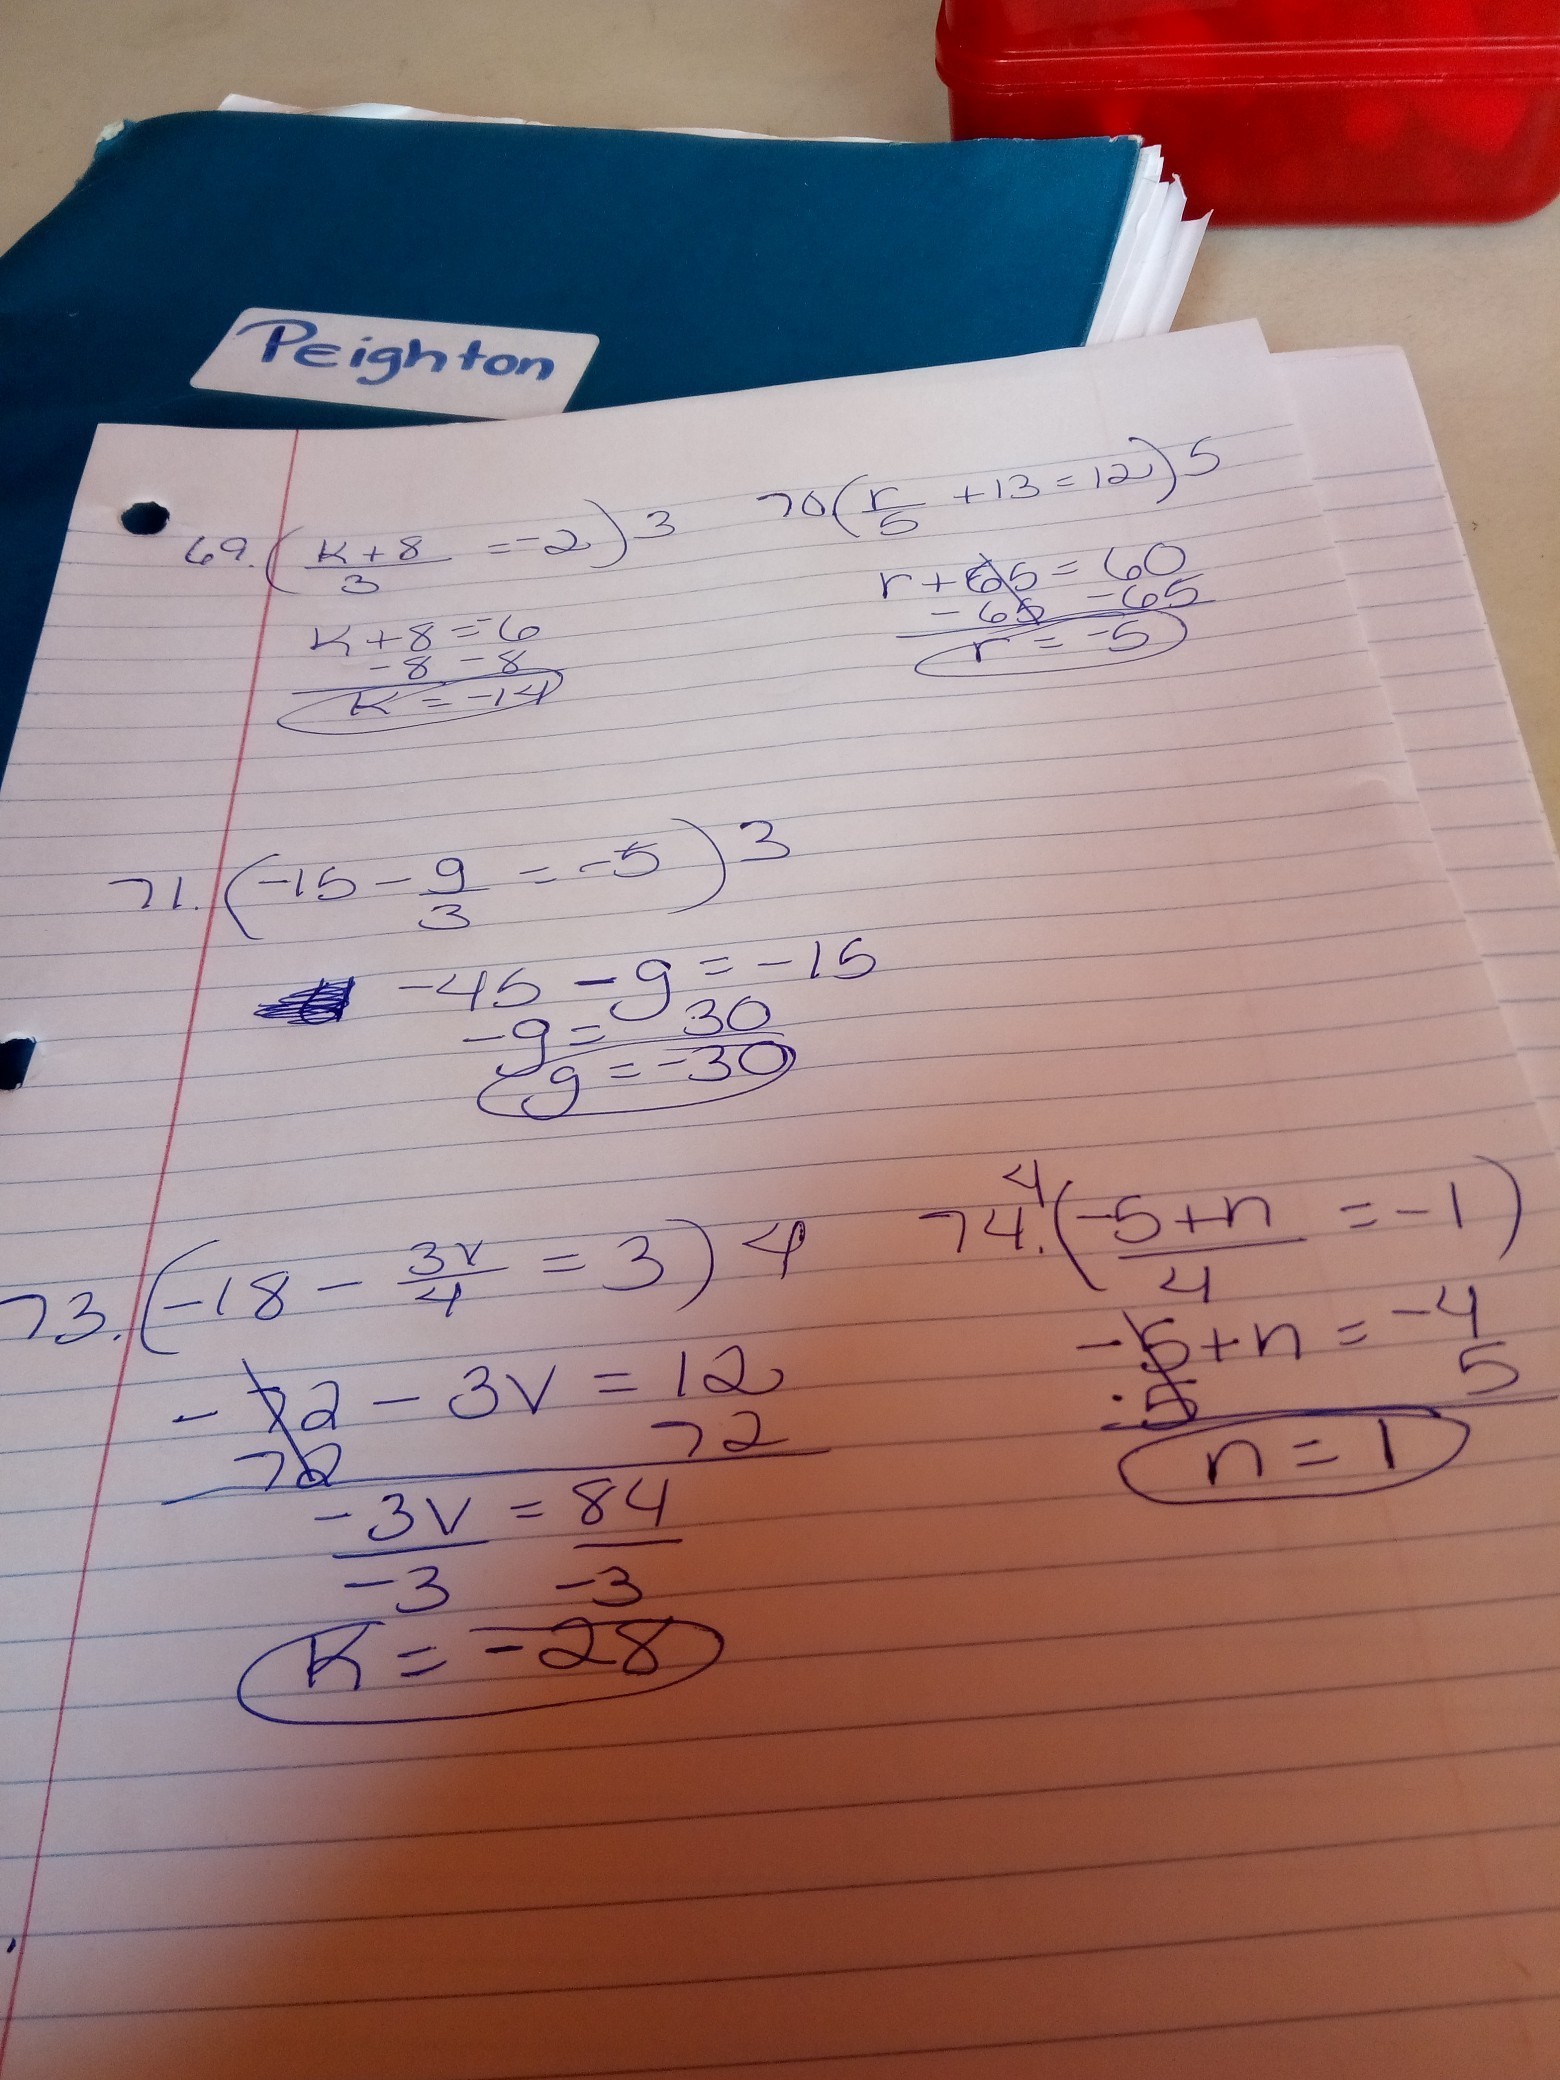 Peighton
69. (k+8/3 = -2)3
k+8=-6
-8 -8
k = -14
70(r/5 +13=12)5
r+65=60
-65 -65
r=-5
71. (-15-g/3=-5)3
-45-g=-15
-g= 30
g=-30
73. (-18-3v/4=3)4
-72-3v=12
72 72
-3v=84
-3 -3
K=-28
74. 4(-5+n/4=-1)
-5+n=-4
-5 5
n=1